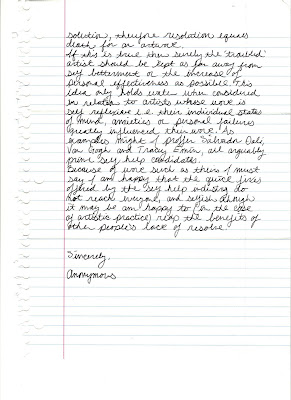 solution, therefore resolution equals
death for an artwork.
If this is true then surely the 'troubled'
artist should be kept as far away from
self betterment or the increase of
personal effectiveness as possible. This
idea only holds water when considered
in relation to artists whose work is
self reflexive i.e. their individual states
of mind, anxieties or personal failures
greatly influenced their work. As
examples might I proffer Salvador Dali,
Van Gogh and Tracey Emin, all arguably
prime self help candidates.
Because of work such as theirs I must
say I am happy that the quick fixes
offered by the self help industry do
not reach everyone, and selfish though
it may be am happy to (in the case
of artistic practice) reap the benefits of
other people's lack of resolve.
Sincerely,
Anonymous